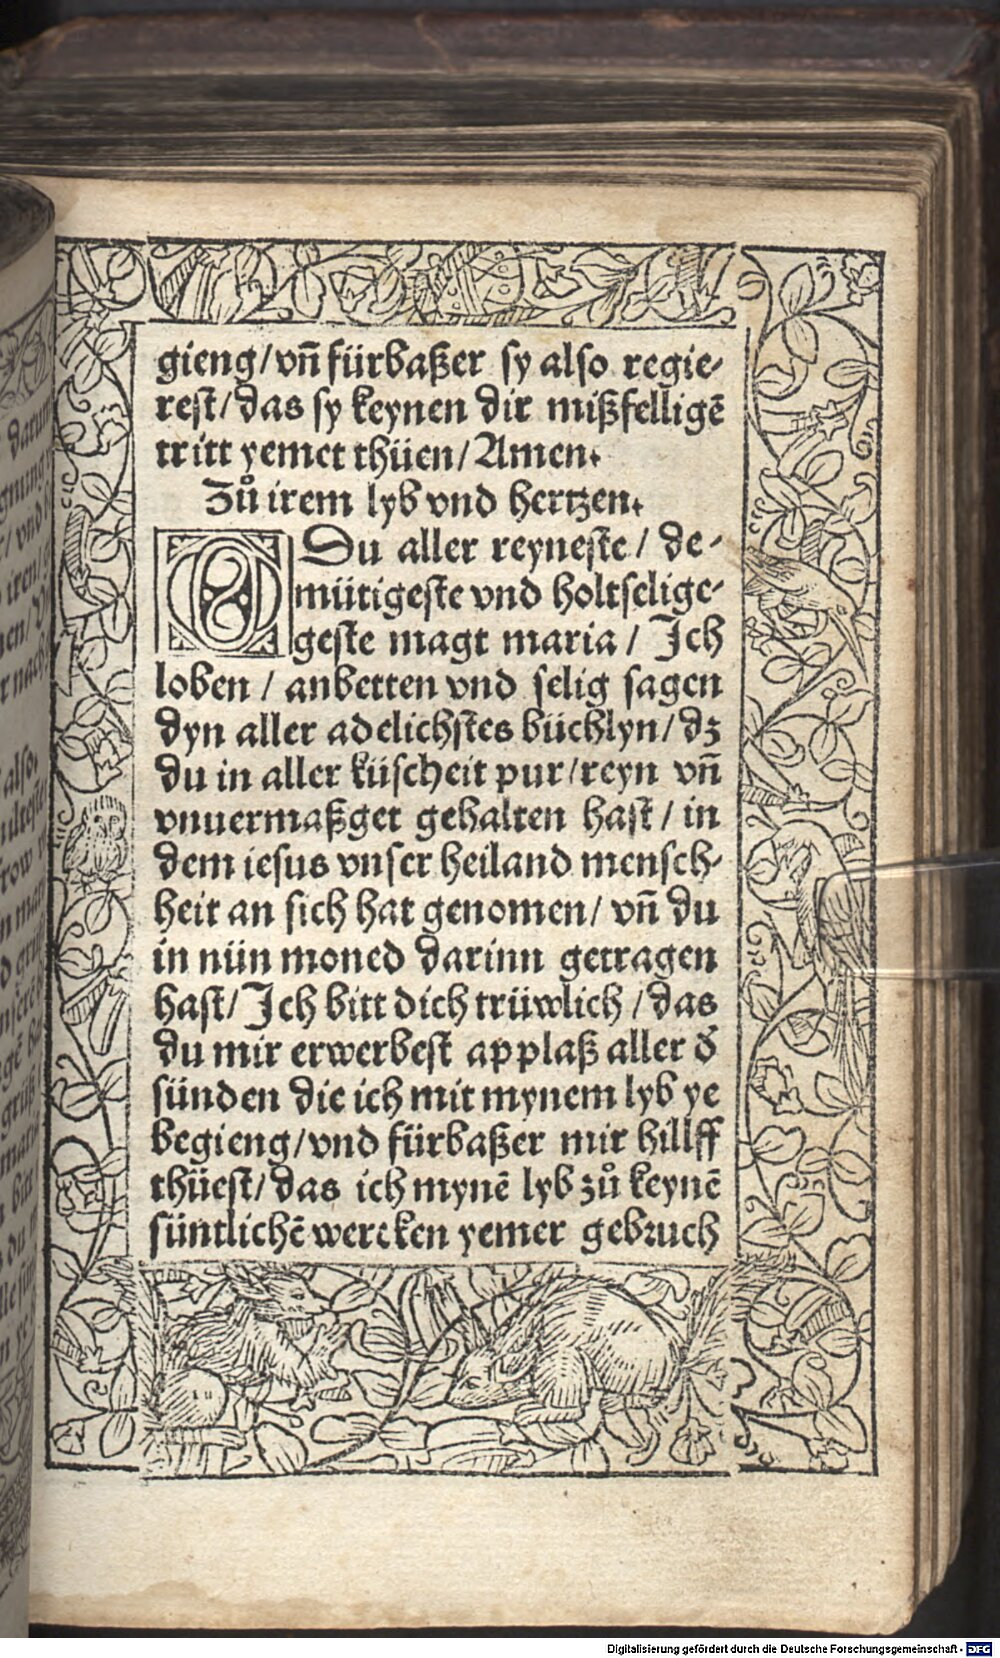 gieng/vn̄ fürbaßer sy also regie-
rest/das sy keynen dir mißfelligē
tritt yemer thüen/Amen.
Zů irem lyb vnd hertzen.
O Du aller reyneste/ de-
mütigeste vnd holtselige-
geste magt maria/ Ich
loben/ anbetten vnd selig sagen
dyn aller adelichstes büchlyn/dz
du in aller küscheit pur/reyn vn̄
vnuermaßget gehalten hast/ in
dem iesus vnser heiland mensch-
heit an sich hat genomen/ vn̄ du
in nün moned darinn getragen
hast/Ich bitt dich trüwlich/das
du mir erwerbest applaß aller d̄
sünden die ich mit mynem lyb ye
begieng/vnd fürbaßer mir hillff
thüest/das ich mynē lyb zů keynē
süntlichē wercken yemer gebruch
Digitalisierung gefördert durch die Deutsche Forschungsgemeinschaft - DFG